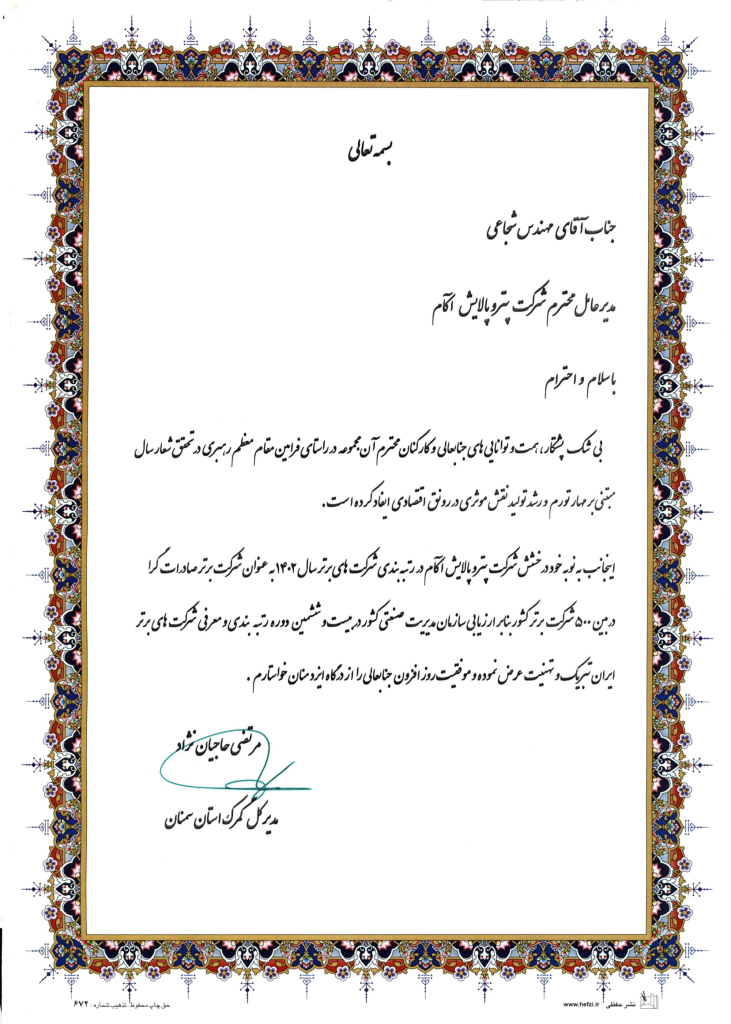 بسمه تعالی
جناب آقای مهندس شجاعی
مدیر عامل محترم شرکت پترو پالایش آکام
با سلام و احترام
بی شک پشتکار، همت و توانایی های جنابعالی و کارکنان محترم آن مجموعه در راستای فرامین مقام معظم رهبری در تحقق شعار سال
مبتنی بر مهار تورم و رشد تولید نقش موثری در رونق اقتصادی ایفاد کرده است.
اینجانب به نوبه خود درخشش شرکت پترو پالایش آکام در رتبه بندی شرکت های برتر سال ۱۴۰۲ به عنوان شرکت برتر صادرات گرا
در بین ۵۰۰ شرکت برتر کشور بنابر ارزیابی سازمان مدیریت صنعتی کشور در بیست و ششمین دوره رتبه بندی و معرفی شرکت های برتر
ایران تبریک و تهنیت عرض نموده و موفقیت روز افزون جنابعالی را از درگاه ایزد منان خواستارم .
مرتضی حاجیان نژاد
مدیرکل گمرک استان سمنان
نشر حفظی www.hefzi.ir
حق چاپ محفوظ تذهیب شماره : ۶۷۲